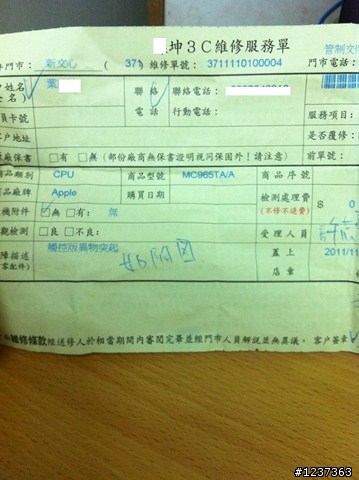 坤3C維修服務單
管制文
門市： 新文心 (371) 維修單號： 3711110100004 門市電話：
姓名 葉 聯絡 聯絡電話：
名) 電話 行動電話：
員卡號 服務項目：
戶地址 是否覆修：
廠保書 □有 □無 (部份廠商無保書證明視同保固外！請注意) 前單號：
商品類別 CPU 商品型號 MC965TA/A 商品序號
商品廠牌 Apple 購買日期 檢測處理費 (不修不退費) $ 0
機附件 ☑無 □有： 無 受理人員
觀檢測 □良 □不良：
障描述 觸控版異物突起 如附図 蓋上 2011/11
客配件) 店章
維修條款經送修人於相當期間內審閱完畢並經門市人員解說並無異議。 客戶簽章
#1237363